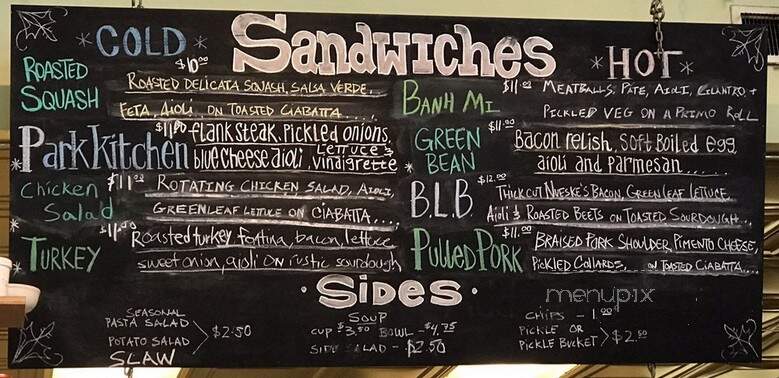 Sandwiches
* COLD *
ROASTED SQUASH $10.00
ROASTED DELICATA SQUASH, SALSA VERDE...
FETA, AIOLI, ON TOASTED CIABATTA....
* Park Kitchen $11.00 flank steak, Pickled onions,
blue cheese aioli, LETTUCE & vinaigrette
* Chicken Salad $11.00
ROTATING CHICKEN SALAD, AIOLI,
GREENLEAF LETTUCE ON CIABATTA....
* TURKEY $11.00
Roasted turkey fontina, bacon, lettuce
sweet onion, aioli ON rustic sourdough
* HOT *
BANH MI $11.00 MEATBALLS, PATE, AIOLI, CILANTRO +
PICKLED VEG ON A PRIMO ROLL
* GREEN BEAN $11.00
Bacon relish, Soft Boiled egg,
aioli and parmesan......
B.L.B. $12.00
THICK CUT NUESKE'S BACON, GREEN LEAF LETTUCE,
AIOLI & ROASTED BEETS ON TOASTED SOURDOUGH...
* Pulled PORK $11.00
BRAISED PORK SHOULDER, PIMENTO CHEESE,
PICKLED COLLARDS, ON TOASTED CIABATTA....
menupix
· SIDES ·
SEASONAL
PASTA SALAD
POTATO SALAD
> $2.50
SLAW
SOUP
CUP $3.50 BOWL - $4.75
SIDE SALAD - $2.50
CHIPS - 1.00
PICKLE OR
PICKLE BUCKET > $2.50